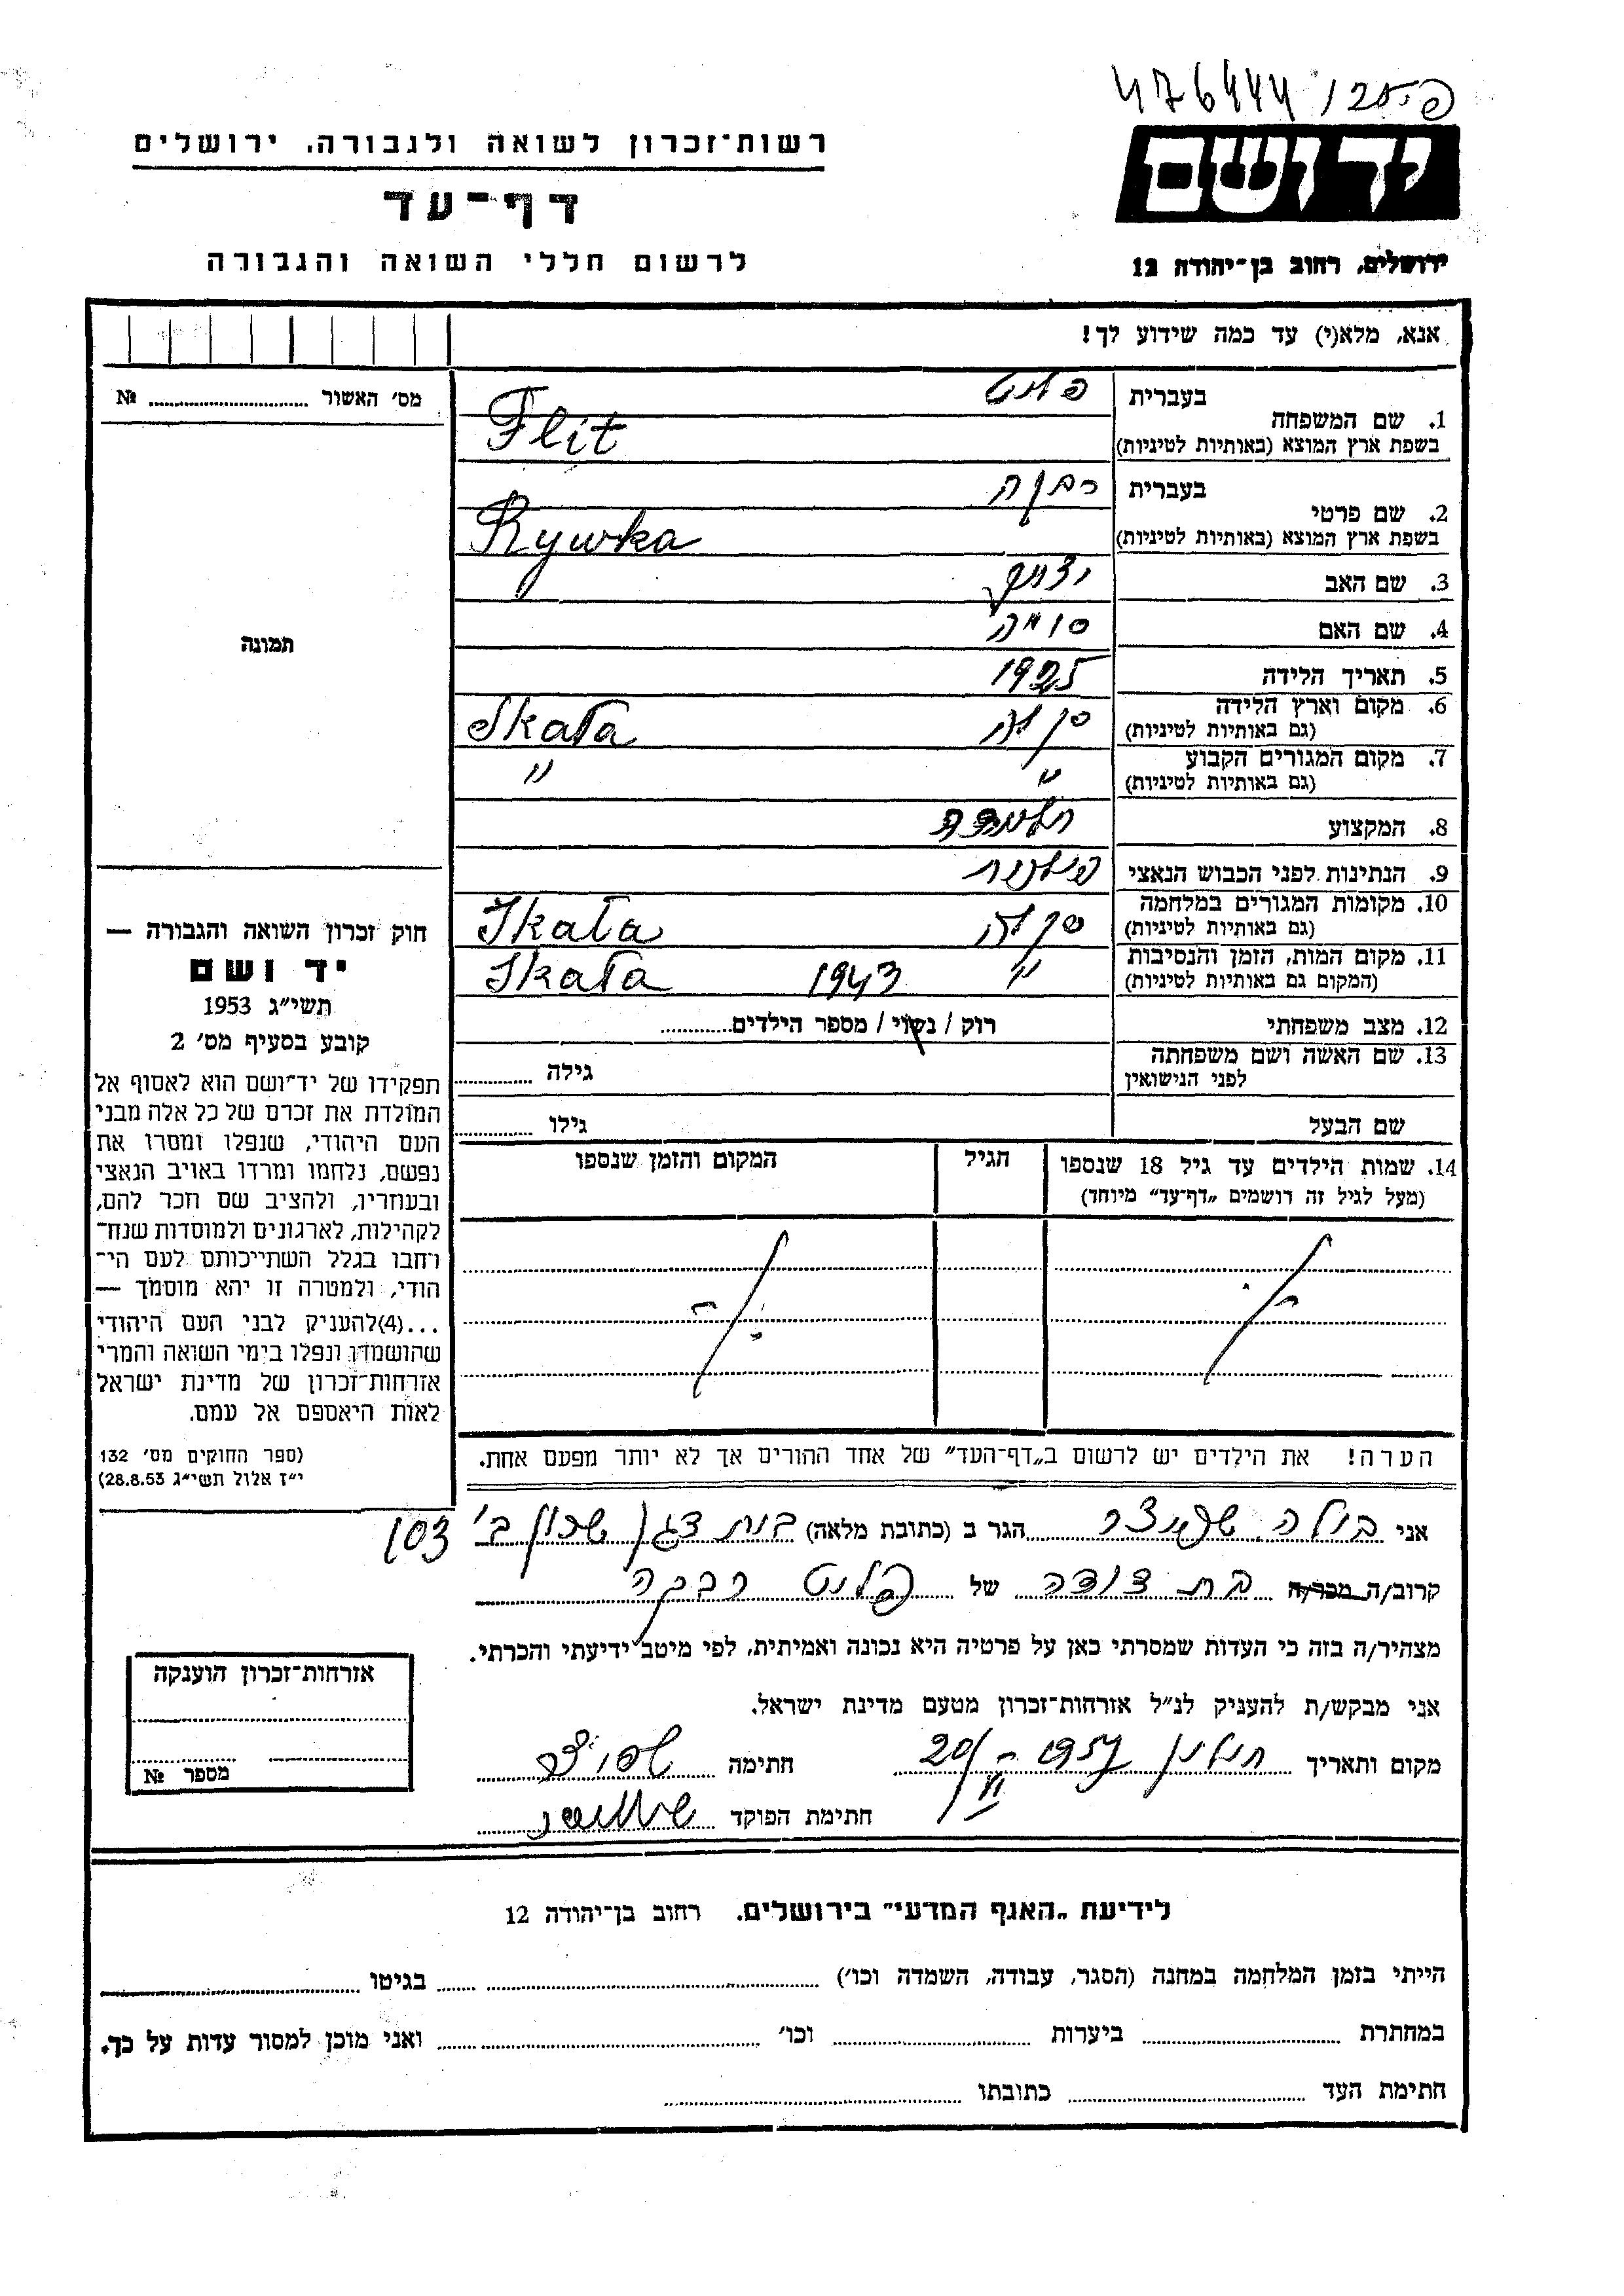 476444 / 125
יד ושם
ירושלים, רחוב בן־יהודה 12
רשות־זכרון לשואה ולגבורה, ירושלים
דף־עד
לרשום חללי השואה והגבורה
אנא, מלא(י) עד כמה שידוע לך!
מס׳ האשור № ..........
1. שם המשפחה
בעברית פליט
בשפת ארץ המוצא (באותיות לטיניות) Flit
2. שם פרטי
בעברית רבקה
בשפת ארץ המוצא (באותיות לטיניות) Rywka
3. שם האב יצחק
4. שם האם
5. תאריך הלידה 1925
6. מקום וארץ הלידה סקלה Skała
(גם באותיות לטיניות)
7. מקום המגורים הקבוע " "
(גם באותיות לטיניות)
8. המקצוע תלמידה
9. הנתינות לפני הכבוש הנאצי פולנית
10. מקומות המגורים במלחמה סקלה Skała
(גם באותיות לטיניות)
11. מקום המות, הזמן והנסיבות " 1943 Skała
(המקום גם באותיות לטיניות)
12. מצב משפחתי רוק / נשוי / מספר הילדים..........
13. שם האשה ושם משפחתה
לפני הנישואין גילה ..........
שם הבעל גילו ..........
14. שמות הילדים עד גיל 18 שנספו הגיל המקום והזמן שנספו
(מעל לגיל זה רושמים „דף־עד” מיוחד)
הערה! את הילדים יש לרשום ב„דף־העד” של אחד ההורים אך לא יותר מפעם אחת.
תמונה
חוק זכרון השואה והגבורה —
יד ושם
תשי״ג 1953
קובע בסעיף מס׳ 2
תפקידו של יד־ושם הוא לאסוף אל
המולדת את זכרם של כל אלה מבני
העם היהודי, שנפלו ומסרו את
נפשם, נלחמו ומרדו באויב הנאצי
ובעוזריו, ולהציב שם וזכר להם,
לקהילות, לארגונים ולמוסדות שנח־
רבו בגלל השתייכותם לעם הי־
הודי, ולמטרה זו יהא מוסמך —
...(4)להעניק לבני העם היהודי
שהושמדו ונפלו בימי השואה והמרי
אזרחות־זכרון של מדינת ישראל
לאות היאספם אל עמם.
(ספר החוקים מס׳ 132
י״ז אלול תשי״ג 28.8.53)
אני שפיצר הגר ב (כתובת מלאה) בית דגן שכון ב׳ 103
קרוב/ה מכר/ה בת דודה של פליט רבקה
מצהיר/ה בזה כי העדות שמסרתי כאן על פרטיה היא נכונה ואמיתית, לפי מיטב ידיעתי והכרתי.
אני מבקש/ת להעניק לנ״ל אזרחות־זכרון מטעם מדינת ישראל.
מקום ותאריך חולון 1957 - 20/VI חתימה שפיצר
חתימת הפוקד
אזרחות־זכרון הוענקה
מספר №
לידיעת „האגף המדעי” בירושלים. רחוב בן־יהודה 12
הייתי בזמן המלחמה במחנה (הסגר, עבודה, השמדה וכו׳) .......... בגיטו ..........
במחתרת .......... ביערות .......... וכו׳ .......... ואני מוכן למסור עדות על כך.
חתימת העד .......... כתובתו ..........